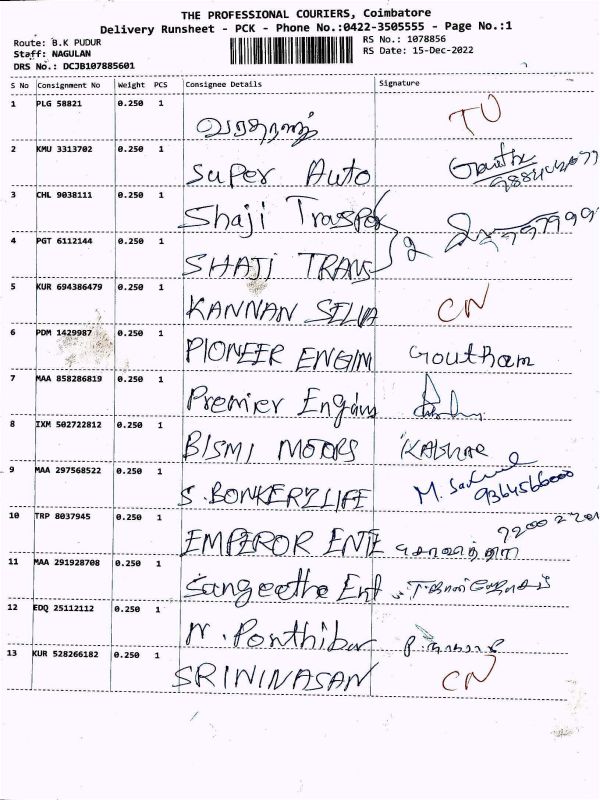 THE PROFESSIONAL COURIERS, Coimbatore
Delivery Runsheet - PCK - Phone No.:0422-3505555 - Page No.:1
Route: B.K PUDUR
RS No.: 1078856
Staff: NAGULAN
RS Date: 15-Dec-2022
DRS No.: DCJB107885601
S No Consignment No Weight PCS Consignee Details Signature
1 PLG 58821 0.250 1 TU
2 KMU 3313702 0.250 1 Super Auto
3 CHL 9038111 0.250 1 Shaji Traspor
4 PGT 6112144 0.250 1 SHAJI TRANS } 2
5 KUR 694386479 0.250 1 KANNAN SELVA CN
6 PDM 1429987 0.250 1 PIONEER ENGIN Goutham
7 MAA 858286819 0.250 1 Premier Engine
8 IXM 502722812 0.250 1 BISMI MOTORS
9 MAA 297568522 0.250 1 S.BONKERZLIFE M.
10 TRP 8037945 0.250 1 EMPEROR ENTE
11 MAA 291928708 0.250 1 Sangeetha Ent
12 EDQ 25112112 0.250 1 N. Ponthibar
13 KUR 528266182 0.250 1 SRININASAN CN